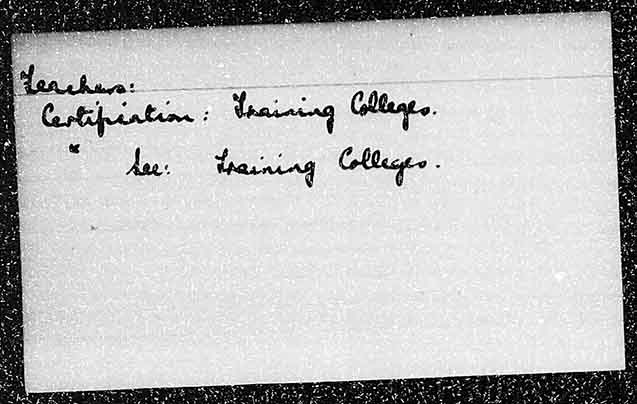 Teachers:
Certification: Training Colleges.
* See: Training Colleges.